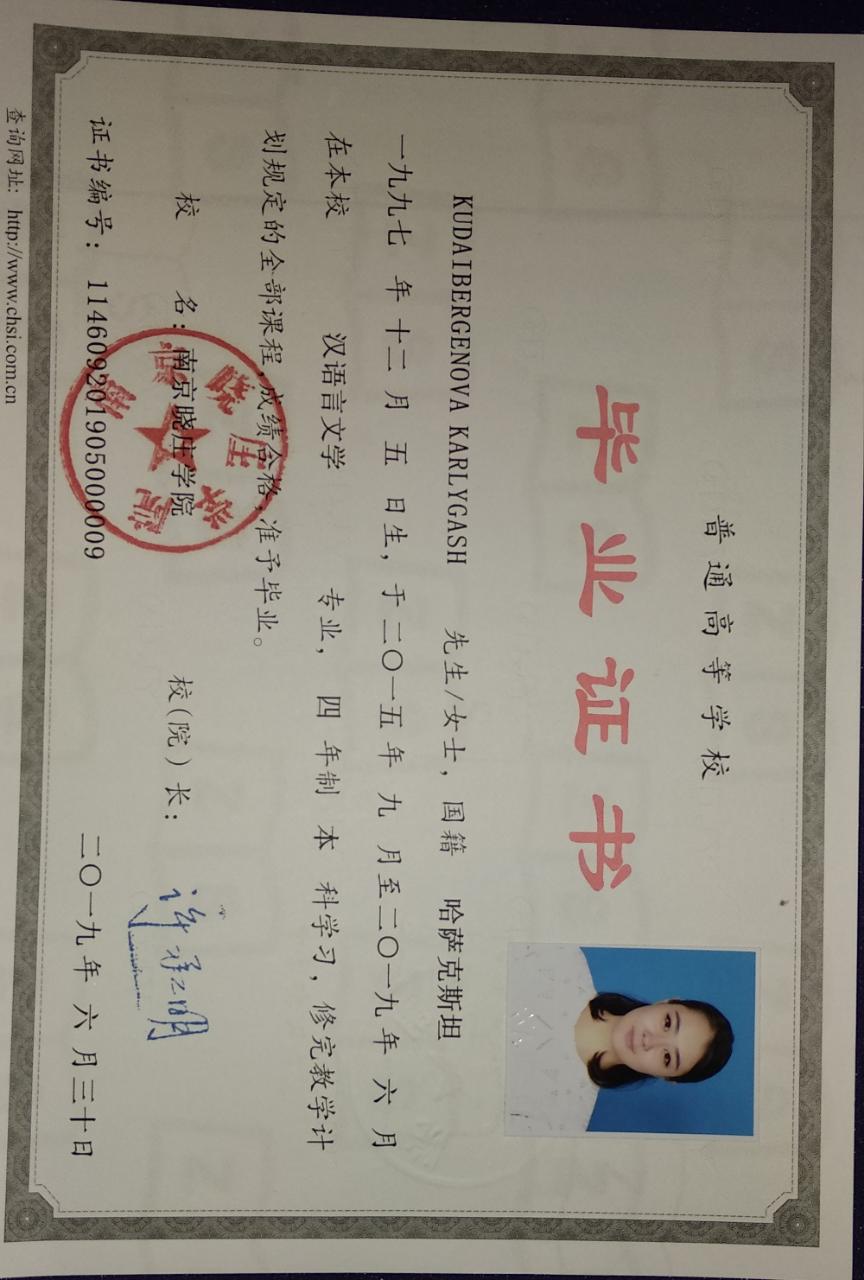 普通高等学校
毕业证书
KUDAIBERGENOVA KARLYGASH 先生/女士，国籍 哈萨克斯坦
一九九七 年 十二 月 五 日生，于二〇一五年 九 月至二〇一九年 六 月
在本校 汉语言文学 专业， 四 年制 本 科学习，修完教学计
划规定的全部课程，成绩合格，准予毕业。
校 名：南京晓庄学院 校（院）长：
证书编号： 114609201905000009 二〇一九年 六 月三十日
查询网址：http://www.chsi.com.cn